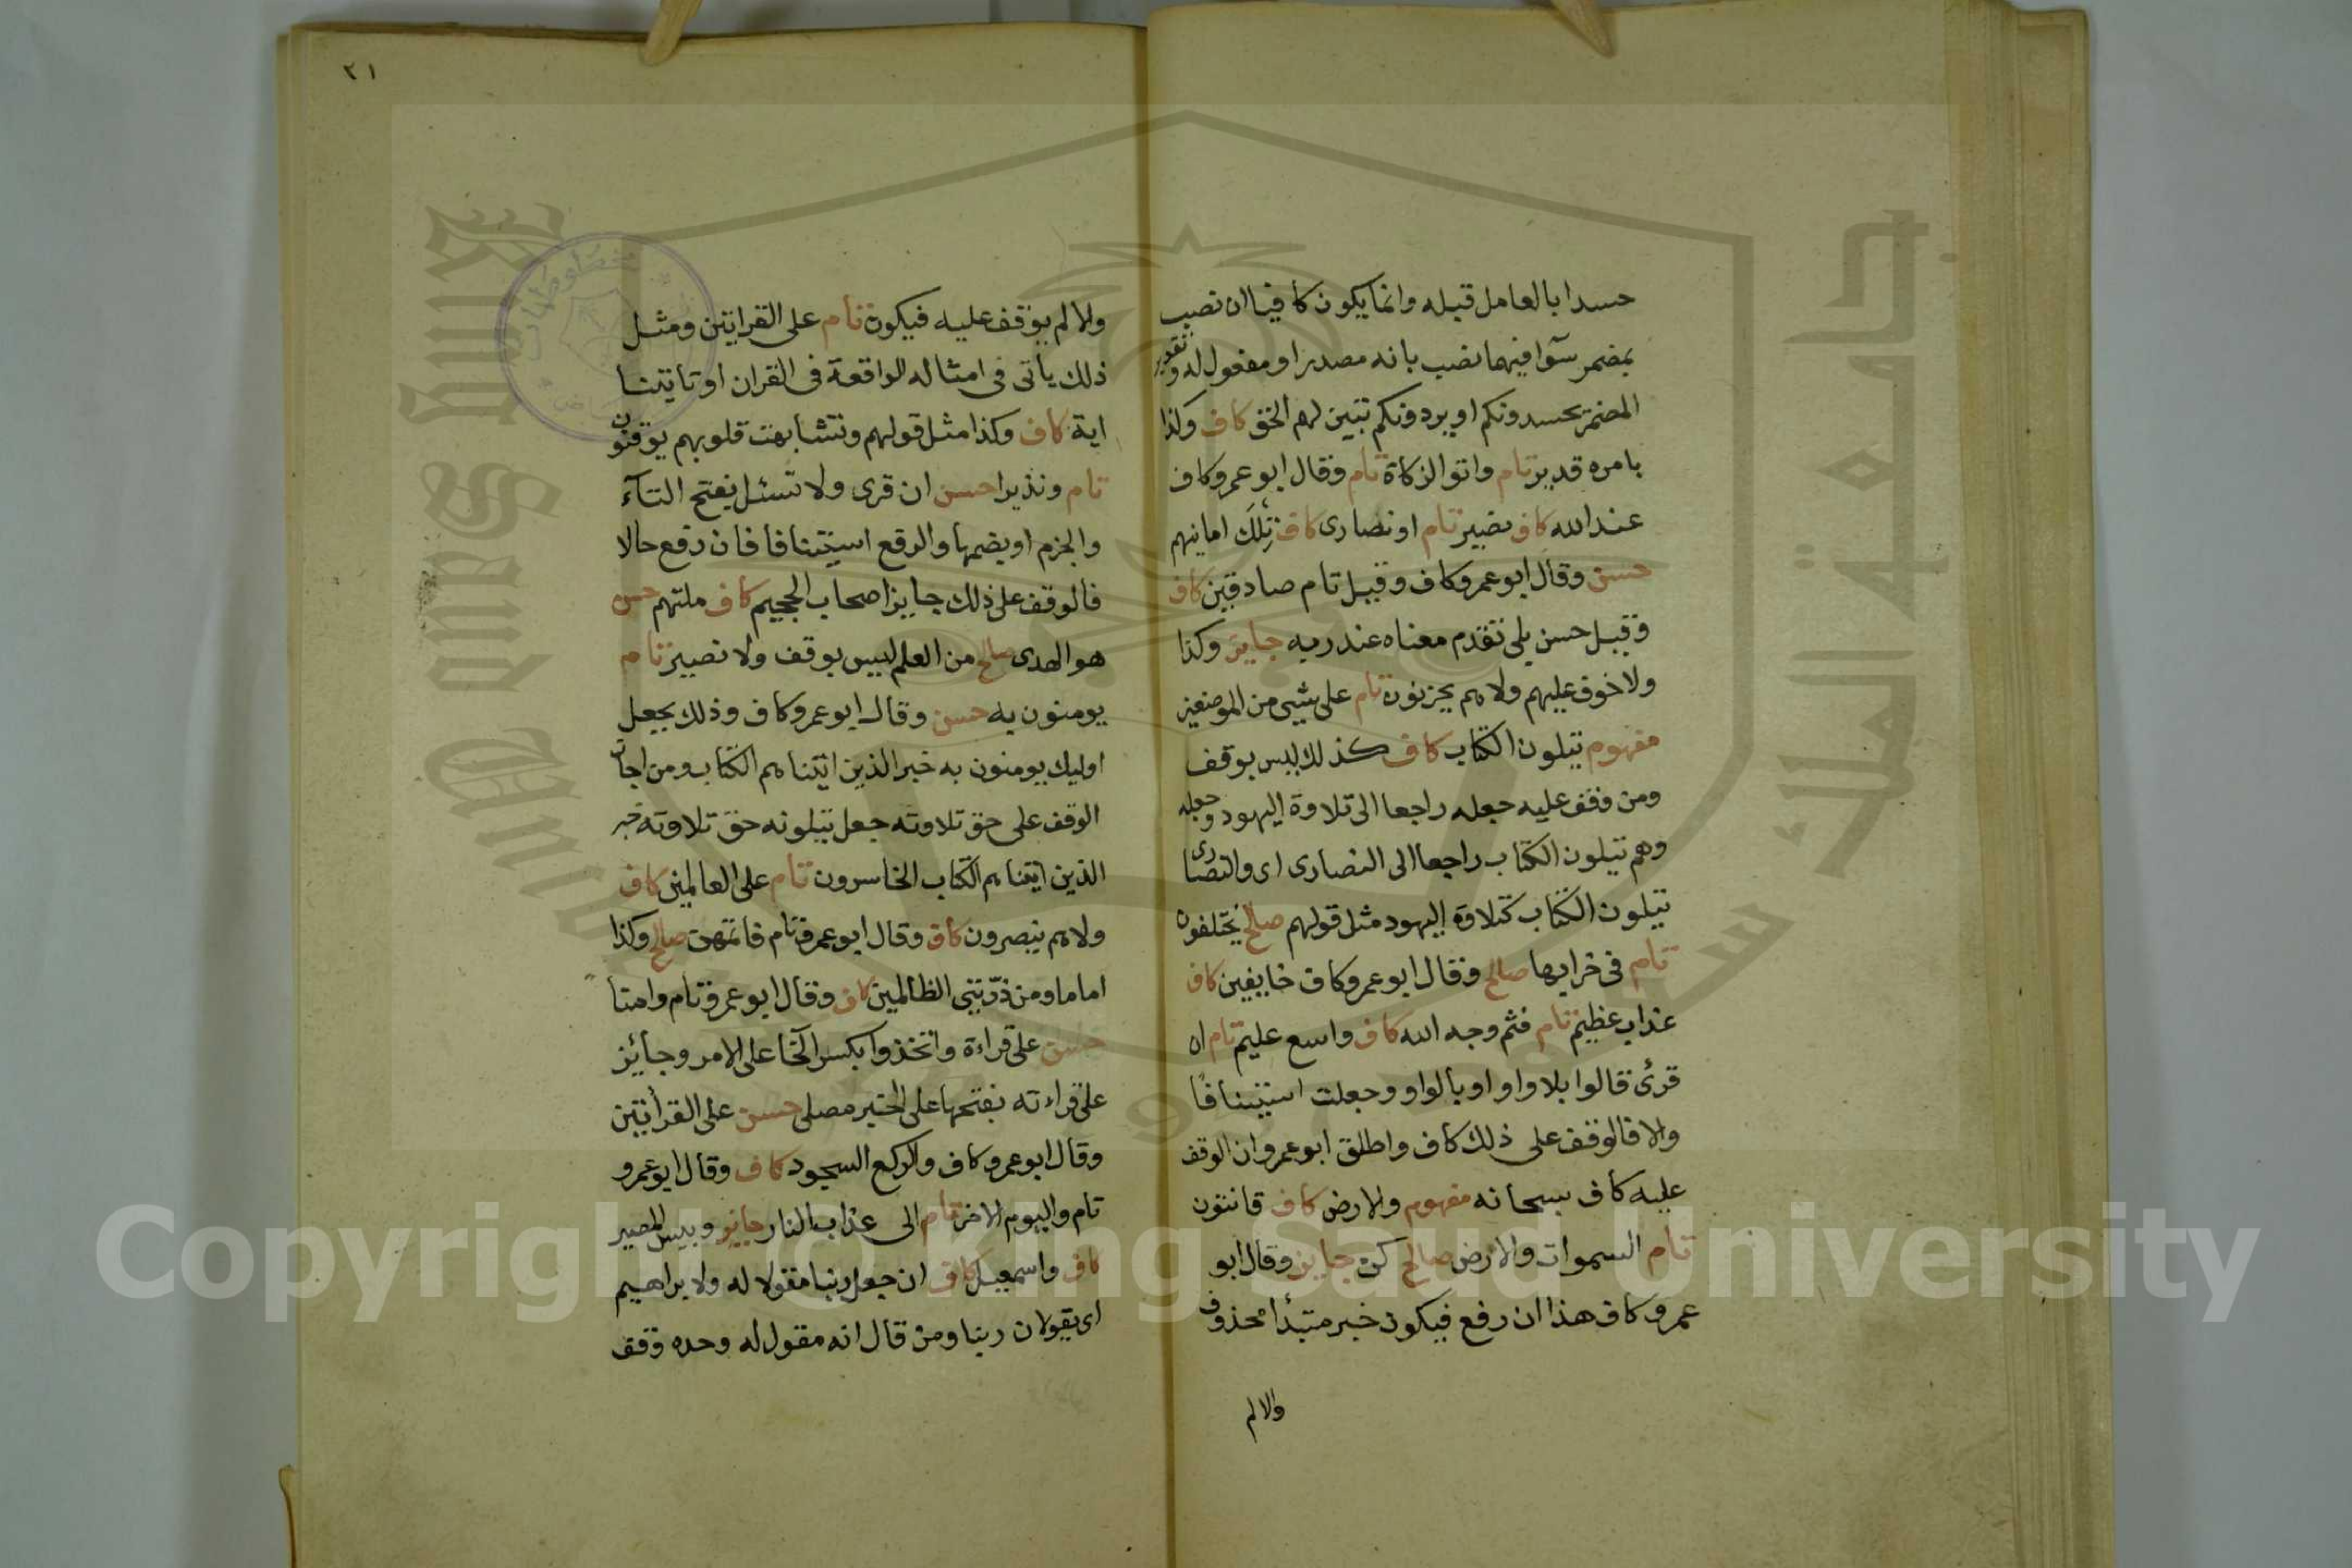 حسدا بالعامل قبله وانما يكون كافيا ان نصب
بمضمر سوا فيهما نصب بانه مصدر او مفعول له وتقدير
المضمر يحسدونكم او يردونكم تبين لهم الحق كاف وكذا
بامره قدير تام واتو الزكاة تام وقال ابو عمرو كاف
عند الله كاف بصير تام او نصارى كاف تلك امانيهم
حسن وقال ابو عمرو كاف وقيل تام صادقين كاف
وقيل حسن بلى تقدم معناه عند ربه جايز وكذا
ولا خوف عليهم ولا هم يحزنون تام على شيى من الموضعين
مفهوم يتلون الكتاب كاف كذلك ليس بوقف
ومن وقف عليه جعله راجعا الى تلاوة اليهود وجعله
وهم يتلون الكتاب راجعا الى النصارى اى والنصارى
يتلون الكتاب كتلاوة اليهود مثل قولهم صالح يختلفون
تام فى خرابها صالح وقال ابو عمرو كاف خايفين كاف
عذاب عظيم تام فثم وجه الله كاف واسع عليم تام ان
قرئ قالوا بلا واو او بالواو وجعلت استينافا
والا فالوقف على ذلك كاف واطلق ابو عمرو ان الوقف
عليه كاف سبحانه مفهوم والارض كاف قانتون
تام السموات والارض صالح كن جايز وقال ابو
عمرو كاف هذا ان رفع فيكون خبر متبدأ محذوف
والا لم
٣١
والا لم يوقف عليه فيكون تام على القرائتين ومثل
ذلك ياتى فى امثاله الواقعة فى القران او تاتينا
اية كاف وكذا مثل قولهم وتشابهت قلوبهم يوقنون
تام ونذيرا حسن ان قرى ولا تسئل بفتح التآء
والجزم او بضمها والرفع استينافا فان رفع حالا
فالوقف على ذلك جايز اصحاب الجحيم كاف ملتهم حسن
هو الهدى صالح من العلم ليس بوقف ولا نصير تام
يومنون به حسن وقال ابو عمرو كاف وذلك بجعل
اوليك يومنون به خبر الذين اتيناهم الكتاب ومن اجاز
الوقف على حق تلاوته جعل يتلونه حق تلاوته خبر
الذين اتيناهم الكتاب الخاسرون تام على العالمين كاف
ولا هم ينصرون كاف وقال ابو عمرو تام فاتمهن صالح وكذا
اماما ومن ذرّيتى الظالمين كاف وقال ابو عمرو تام وامنا
حسن على قراءة واتخذوا بكسر الخآ على الامر وجائز
على قراءته بفتحها على الخبر مصلى حسن على القرأتين
وقال ابو عمرو كاف والركع السجود كاف وقال ابو عمرو
تام واليوم الاخر تام الى عذاب النار جايز وبيس المصير
كاف واسمعيل كاف ان جعل ربنا مقولا له ولابراهيم
اى يقولان ربنا ومن قال انه مقول له وحده وقف
Copyright © King Saud University